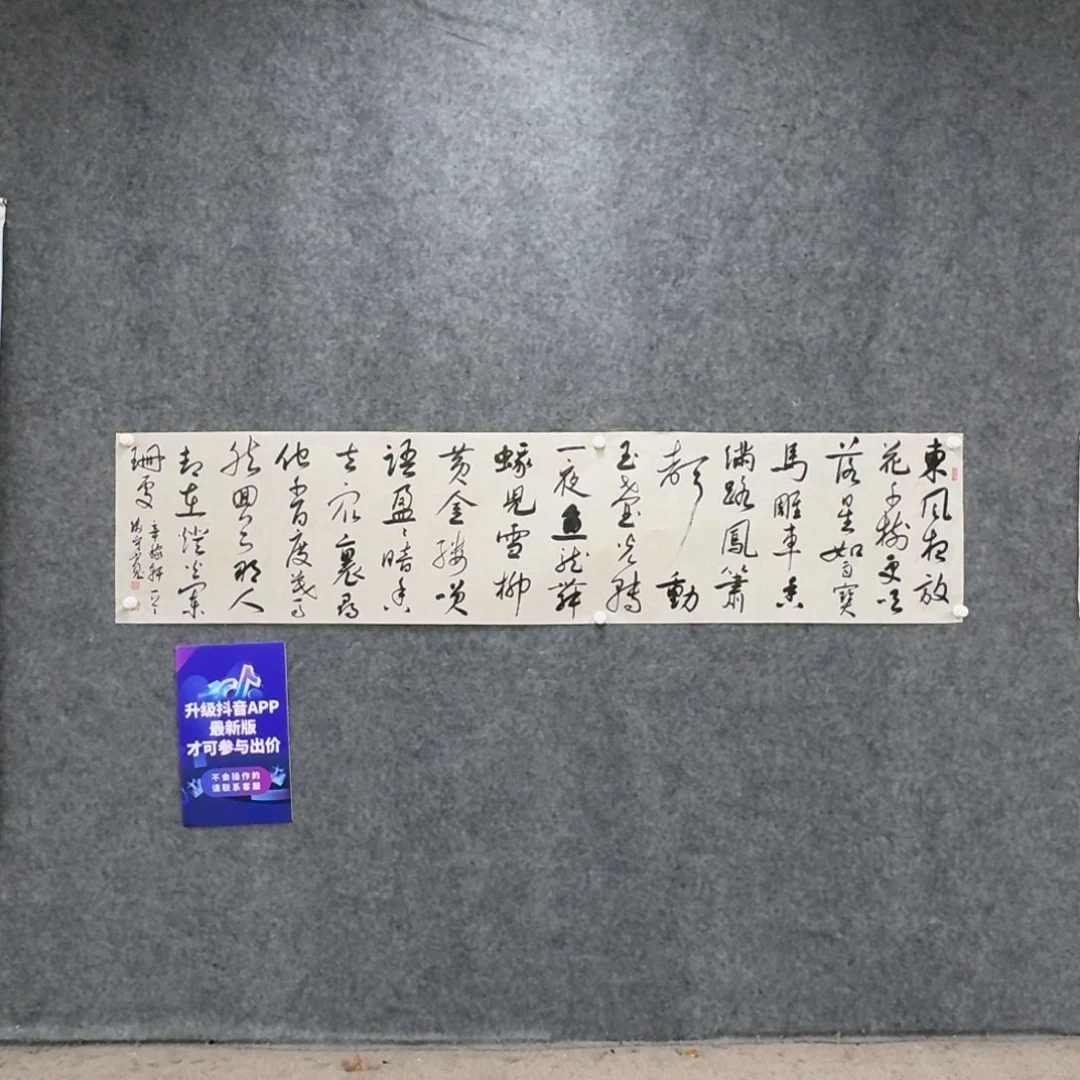 東風夜放
花千樹更吹
落星如雨寶
馬雕車香
滿路鳳簫
聲動
玉壺光轉
一夜魚龍舞
蛾兒雪柳
黃金縷笑
語盈盈暗香
去衆裏尋
他千百度驀
然回首那人
却在燈火闌
珊處
辛稼軒
升级抖音APP
最新版
才可参与出价
不会操作的
请联系客服